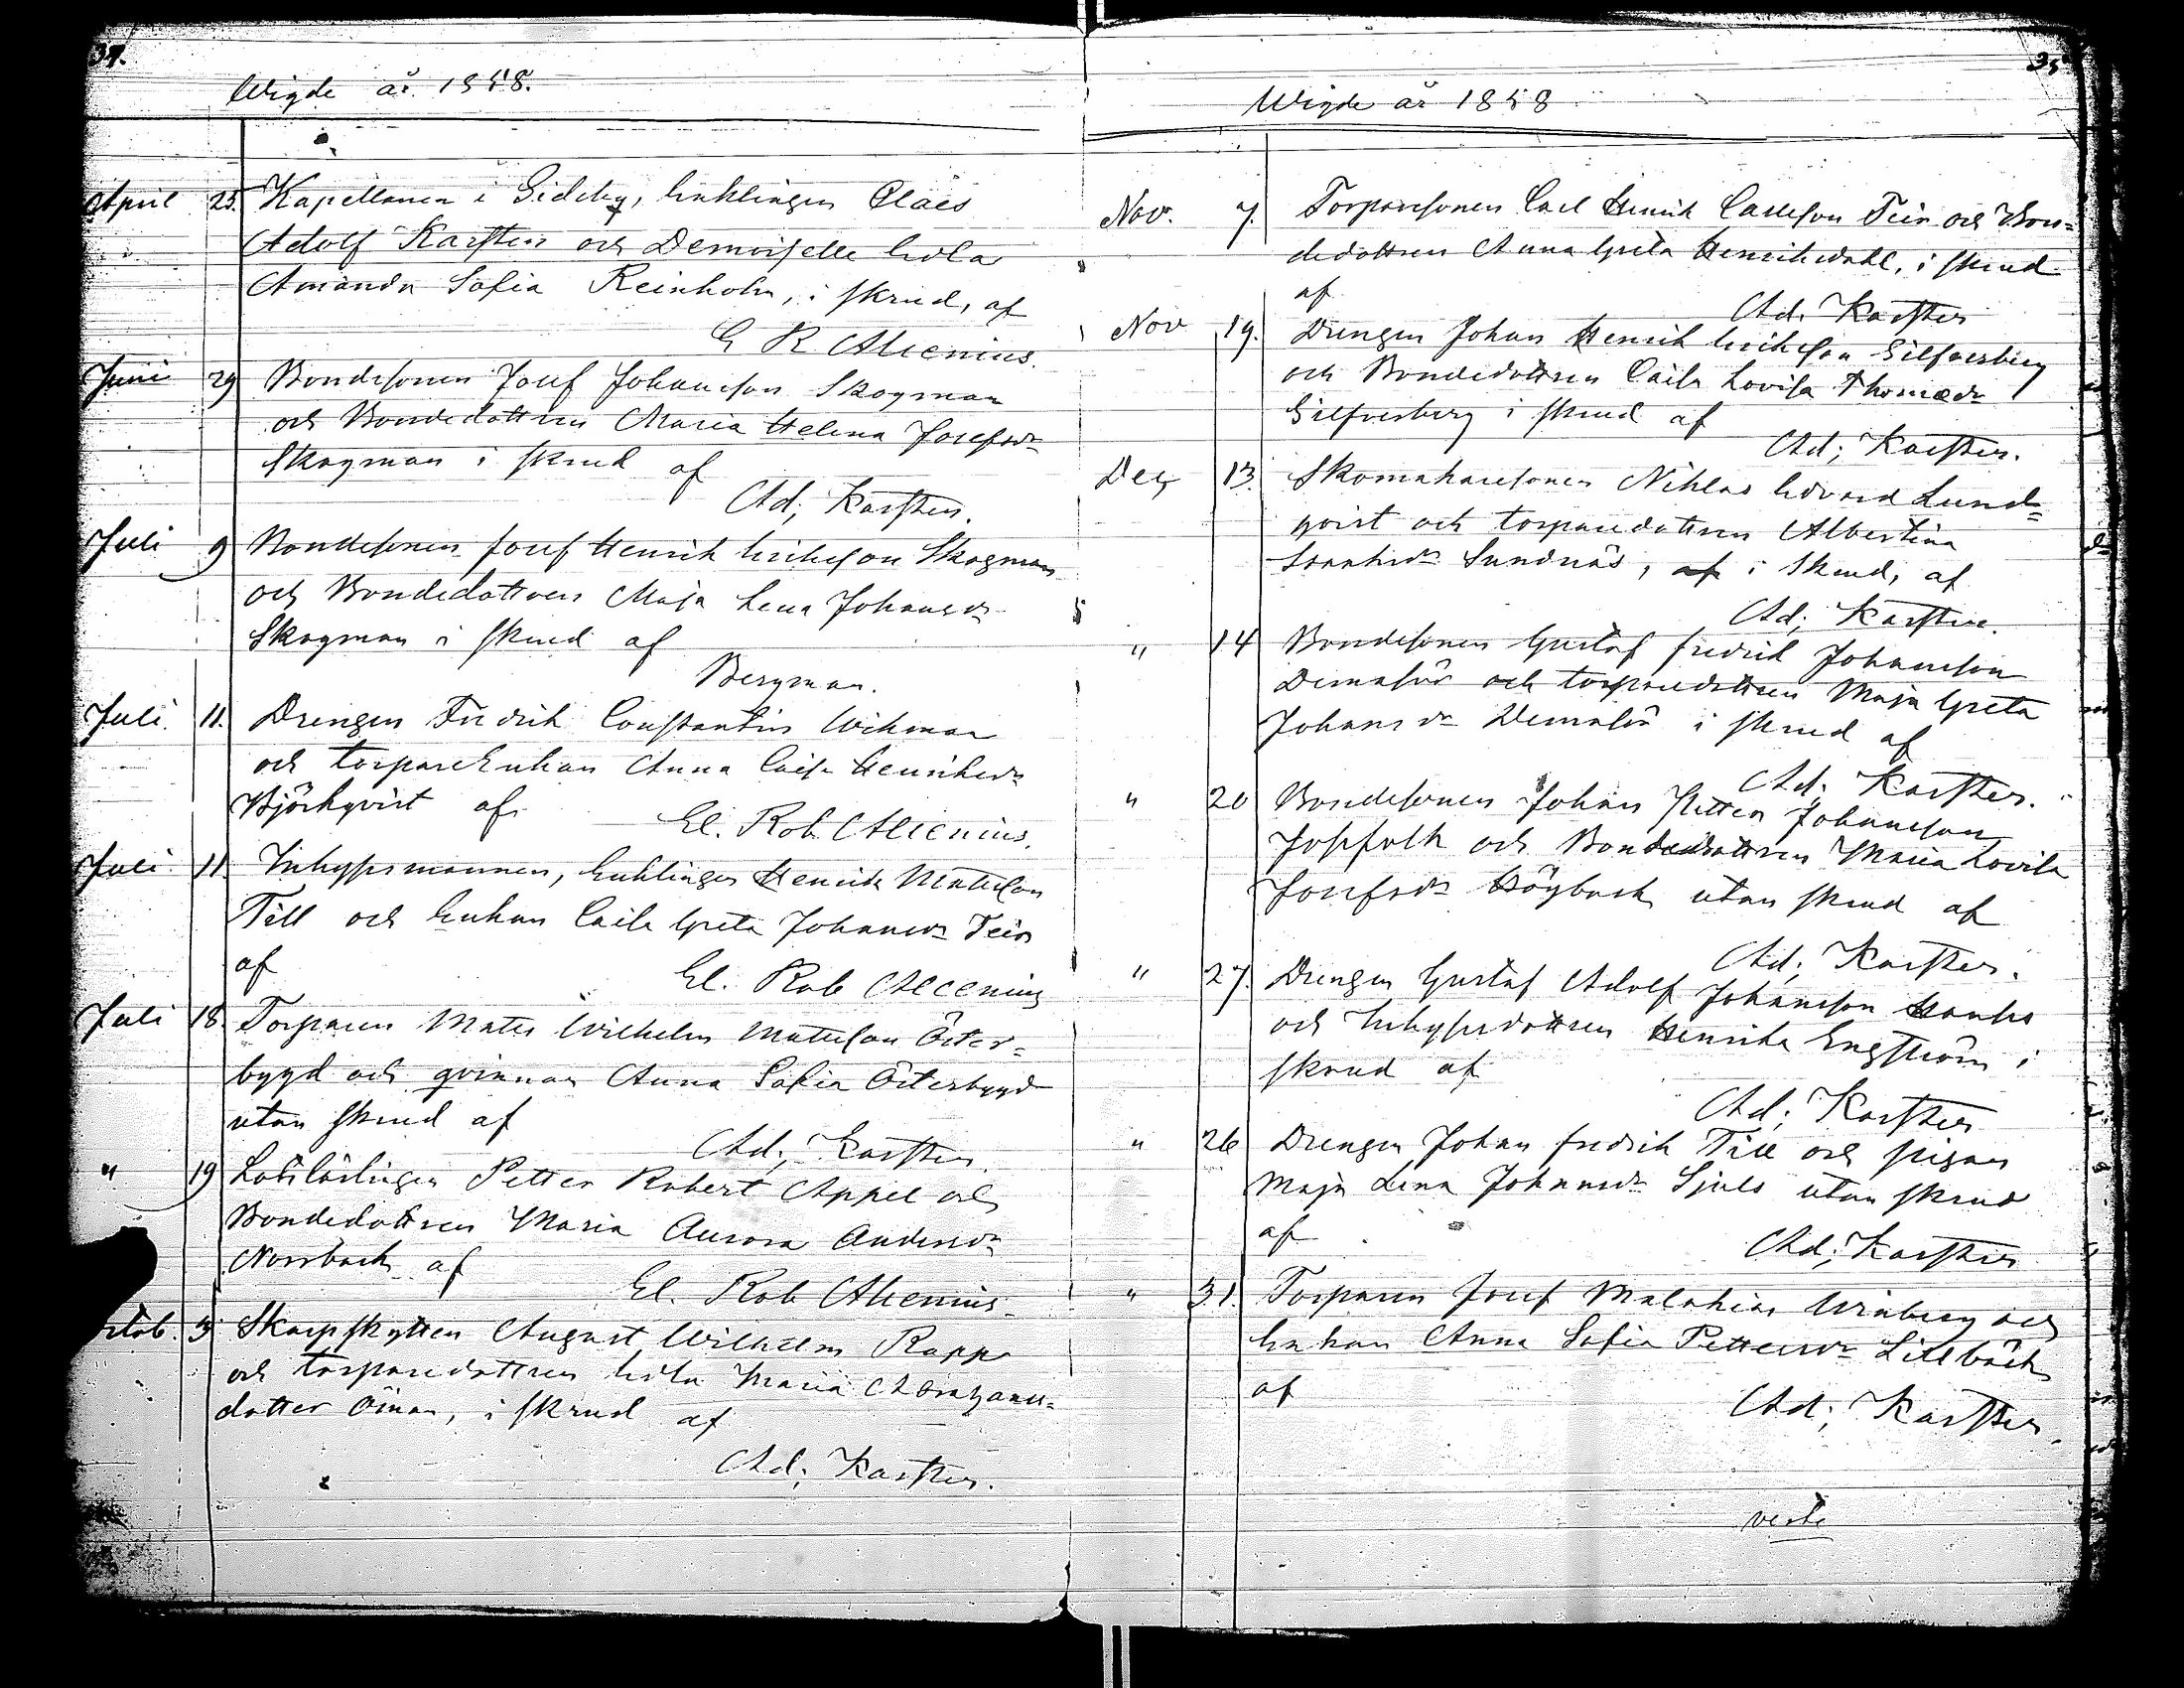 34.
Wigde år 1858.
April 25. Kapellanen i Sideby, Enklingen Claës
Adolf Karsten och Demoiselle Eola
Amanda Sofia Reinholm, i skrud, af
G R Alcenius.
Juni 29 Bondesonen Josef Johansson Skogman
och Bondedottren Maria Helena Josefsdr
Skogman i skrud af
Ad; Karsten.
Juli 9 Bondesonen Josef Henrik Eriksson Skogman
och Bondedottren Maja Lena Johansdr
Skogman i skrud af
Bergman.
Juli. 11. Drengen Fredrik Constantin Wikman
och torpareenkan Anna Caisa Henriksdr
Björkqvist af
El. Rob. Alcenius.
Juli 11 Inhysesmannen, Enklingen Henrik Mattsson
Till och Enkan Caisa Greta Johansdr Teir
af
El. Rob Alcenius
Juli 18. Torparen Mats Wilhelm Mattsson Öster=
bygd och qvinnan Anna Sofia Österbygd
utan skrud af
Ad; Karsten.
" 19 Lotslärlingen Petter Robert Appel och
Bondedottren Maria Aurora Andersdr
Norrback af
El. Rob Alcenius
Octob. 3 Skarpskytten August Wilhelm Rapp
och torparedottren Eola Maria
dotter Öman, i skrud af
Ad; Karsten.
35
Wigde år 1858
Nov. 7. Torparesonen Carl Henrik Carlsson Teir och Bon=
dedottren Anna Greta Henriksdahl, i skrud
af
Ad. Karsten
Nov 19. Drengen Johan Henrik Eriksson Silfversberg
och Bondedottren Caisa Lovisa Thomædr
Silfversberg i skrud af
Ad; Karsten.
Dec 13. Skomakaresonen Niklas Edvard Lund=
qvist och torparedottren Albertina
Sundnäs, af i skrud, af
Ad; Karsten.
" 14 Bondesonen Gustaf Fredrik Johansson
och torparedottren Maja Greta
Johansdr i skrud af
Ad; Karsten.
" 20 Bondesonen Johan Petter Johansson
Jossfolk och Bondedottren Maria Lovisa
Josefsdr Högback utan skrud af
Ad; Karsten.
" 27. Drengen Gustaf Adolf Johansson
och Inhysesdottren Henrika Engström i
skrud af
Ad; Karsten
" 26 Drengen Johan Fredrik Till och pigan
Maja Lena Johansdr Sjuls utan skrud
af
Ad; Karsten
" 31. Torparen Josef Malakias Winberg och
Enkan Anna Sofia Pettersdr Lillbäck
af
Ad; Karsten.
verte